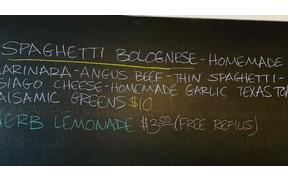 SPAGHETTI BOLOGNESE-HOMEMADE
ARINARA-ANGUS BEEF-THIN SPAGHETTI-
SIAGO CHEESE-HOMEMADE GARLIC TEXAS TOA
ALSAMIC GREENS $10
HERB LEMONADE $3.50 (FREE REFILLS)